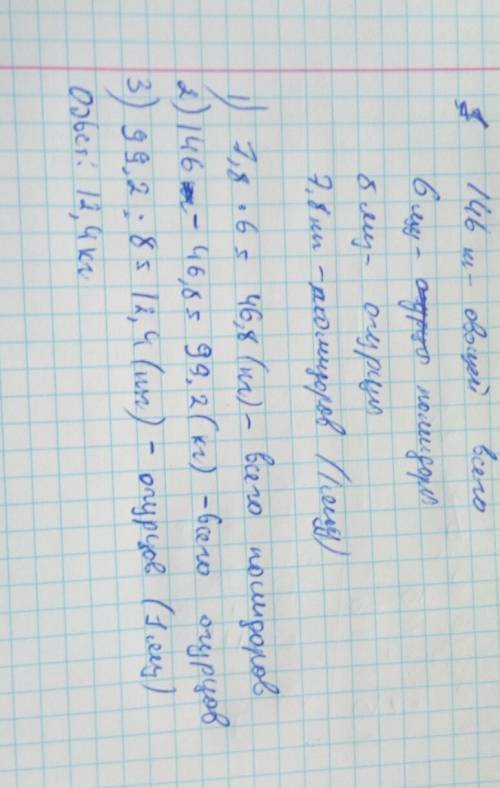 146 кг - овощей всего
6 ящ - помидоры
8 ящ - огурцы
7,8 кг - помидоров (1 ящ)
1) 7,8 · 6 = 46,8 (кг) - всего помидоров
2) 146 - 46,8 = 99,2 (кг) - всего огурцов
3) 99,2 : 8 = 12,4 (кг) - огурцов (1 ящ)
Ответ: 12,4 кг